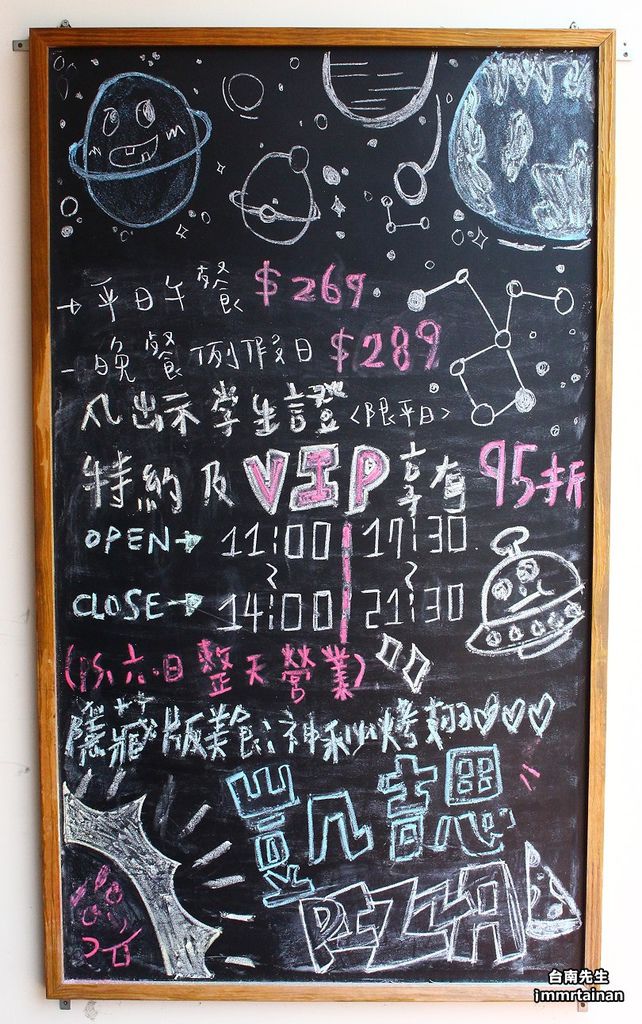 → 平日午餐 $269
- 晚餐 例假日 $289
凡出示學生證<限平日>
特約及VIP享有95折
OPEN→ 11:00 | 17:30
~ ~
CLOSE→ 14:00 | 21:30
(PS,六.日 整天營業)
隱藏版美食:神秘烤翅♡♡♡
凱認
PIZZA
台南先生
immrtainan